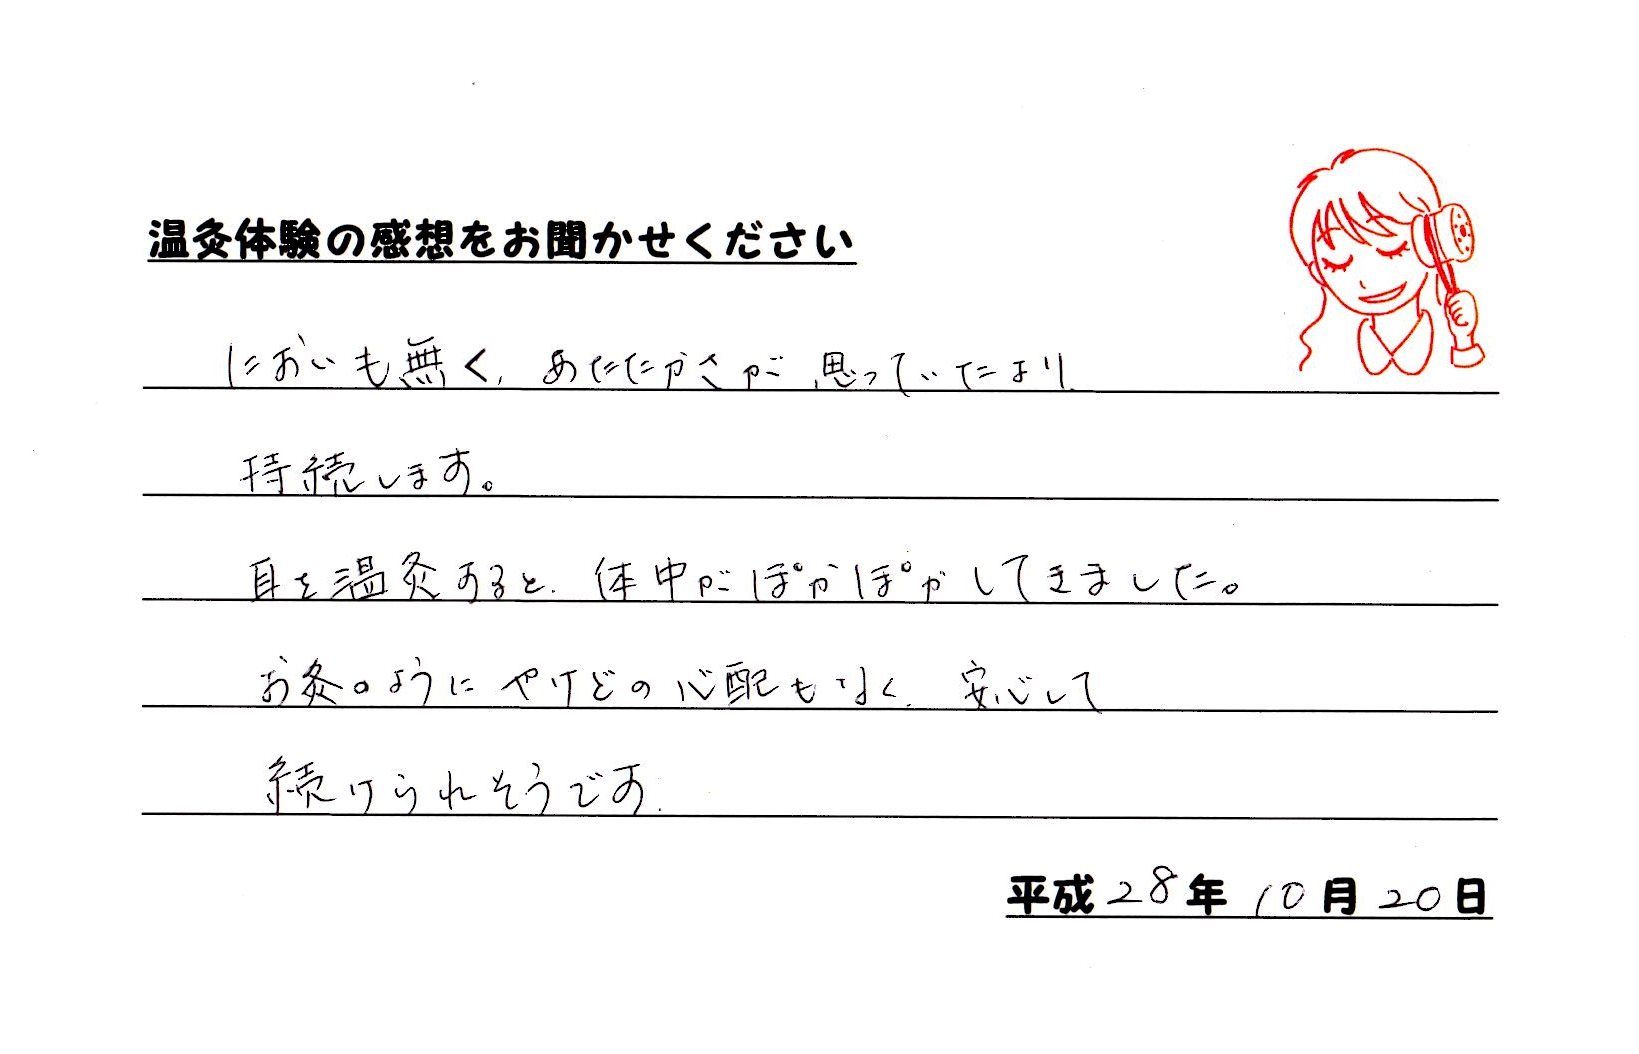 温灸体験の感想をお聞かせください
においも無く、あたたかさが思っていたより
持続します。
耳を温灸すると、体中がぽかぽかしてきました。
お灸のようにやけどの心配もなく、安心して
続けられそうです。
平成28年10月20日